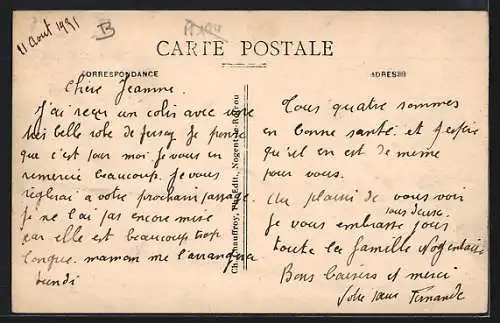 11 Aout 1931
B
CARTE POSTALE
CORRESPONDANCE
ADRESSE
Chère Jeanne.
J'ai reçu un colis avec une
très belle robe de Jersey Je pense
que c'est pour moi je vous en
remercie beaucoup. Je vous
règlerai a votre prochain passage
je ne l'ai pas encore mise
car elle est beaucoup trop
longue. maman me l'arrangera
lundi
Ch. Chauffroy, Pap.Édit., Nogent-le-Rotrou
Tous quatre sommes
en bonne santé et j'espère
qu'il en est de même
pour vous.
Au plaisir de vous voir
tous deux.
je vous embrasse tous
toute la famille
Bons baisers et merci
Fernande